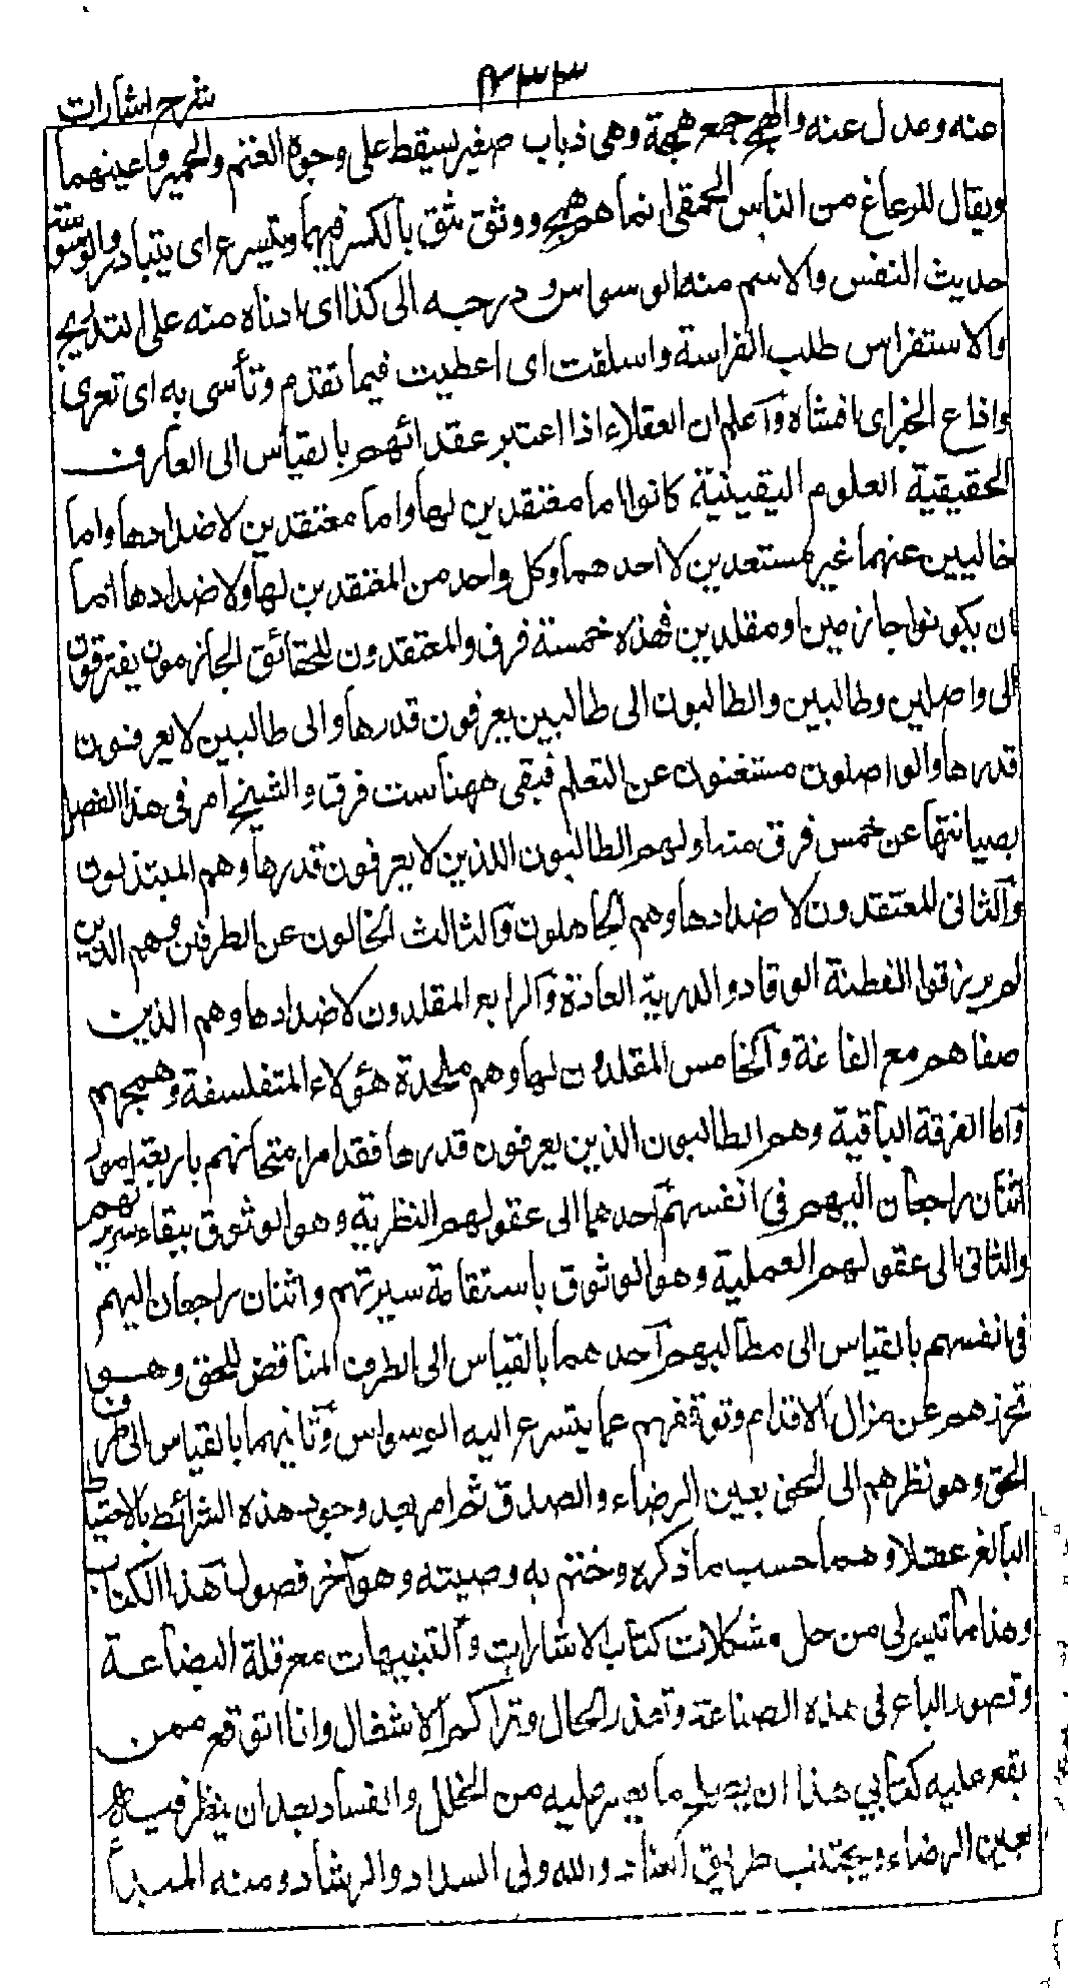 ٤٣٣
شرح اشارات
منه وعدل عنه والهمج جمع همجة وهى ذباب صغير يسقط على وجوة الغنم والحمير واعينهما
ويقال للرعاع من الناس الحمقى انما هم همج ووثق يثق بالكسر فيهما ويتسرع اى يتبادر والوسوسة
حديث النفس والاسم منه الوسواس ودرجه الى كذا اى ادناه منه على التدريج
والاستفراس طلب الفراسة واسلفت اى اعطيت فيما تقدم وتأسى به اى تعزى
واذاع الخبر اى افشاه وآعلم ان العقلاء اذا اعتبر عقدائهم بالقياس الى المعارف
الحقيقية العلوم اليقينية كانوا اما معتقدين لها واما معتقدين لاضدادها واما
خاليين عنهما غير مستعدين لاحدهما وكل واحد من المعتقدين لها ولاضدادها اما
ان يكونوا جازمين او مقلدين فهذه خمسة فرق والمعتقدون للحقائق الجازمون يفترقون
الى واصلين وطالبين والطالبون الى طالبين يعرفون قدرها والى طالبين لا يعرفون
قدرها والواصلون مستغنون عن التعلم فبقى ههنا ست فرق والشيخ امر فى هذا الفصل
بصيانتها عن خمس فرق منهم اولهم الطالبون الذين لا يعرفون قدرها وهم المبتذلون
وآلثانى المعتقدون لاضدادها وهم الجاهلون وآلثالث الخالون عن الطرفين وهم الذين
لم يرزقوا الفطنة الوقادو الدربة العادة وآلرابع المقلدون لاضدادها وهم الذين
صفاهم مع الغاغة وآلخامس المقلدون لها وهم ملحدة هؤلاء المتفلسفة وهمجهم
وآما الفرقة الباقية وهم الطالبون الذين يعرفون قدرها فقد امر امتحانهم باربعة امور
اثنان راجعان اليهم فى انفسهم آحدهما الى عقولهم النظرية وهو الوثوق بنقاء سريرتهم
والثانى الى عقولهم العملية وهو الوثوق باستقامة سيرتهم واثنان راجعان اليهم
فى انفسهم بالقياس الى مطالبهم آحدهما بالقياس الى الطرف المناقض للحق وهو
تحرزهم عن مزال الاقدام وتوقفهم عما يتسرع اليه الوسواس وثانيهما بالقياس الى طرف
الحق وهو نظرهم الى الحق بعين الرضاء والصدق ثم امر بعد وجوب هذه الشرائط بالاحتياط
البالغ عقلا وهما حسب ما ذكره وختم به وصيته وهو آخر فصول هذا الكتاب
وهذا ما تيسر لى من حل مشكلات كتاب الاشارات وآلتنبيهات مع قلة البضاعة
وقصور الباع فى هذه الصناعة وتعذر الحال وتراكم الاشغال وانا اتوقع ممن
يقع عليه كتابي هذا ان يصلح ما يعثر عليه من الخلل والفساد بعد ان ينظر فيه
بعين الرضاء ويجتنب طريق العناد والله ولى السداد والرشاد ومنه المبدأ